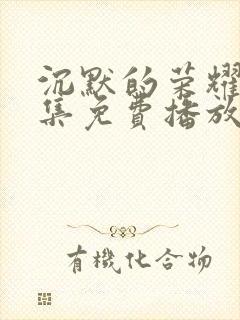 沉默的荣耀
集免费播放
有機化合物